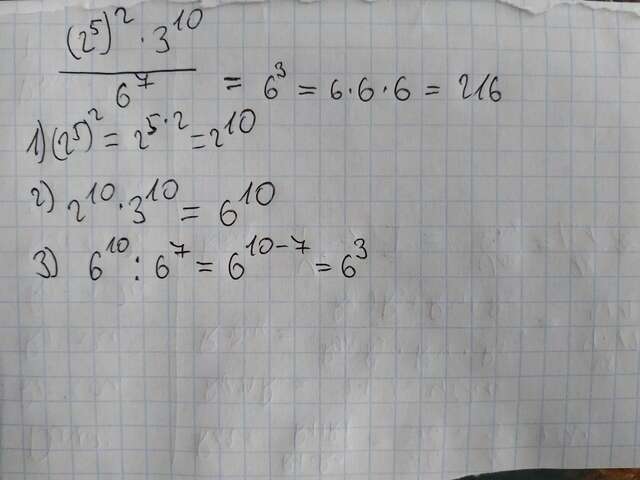 (2⁵)² · 3¹⁰
6⁷ = 6³ = 6·6·6 = 216
1) (2⁵)² = 2⁵·² = 2¹⁰
2) 2¹⁰·3¹⁰ = 6¹⁰
3) 6¹⁰ : 6⁷ = 6¹⁰⁻⁷ = 6³